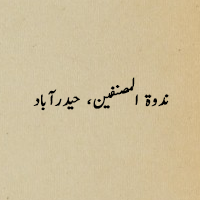 ندوة المصنفین، حیدرآباد